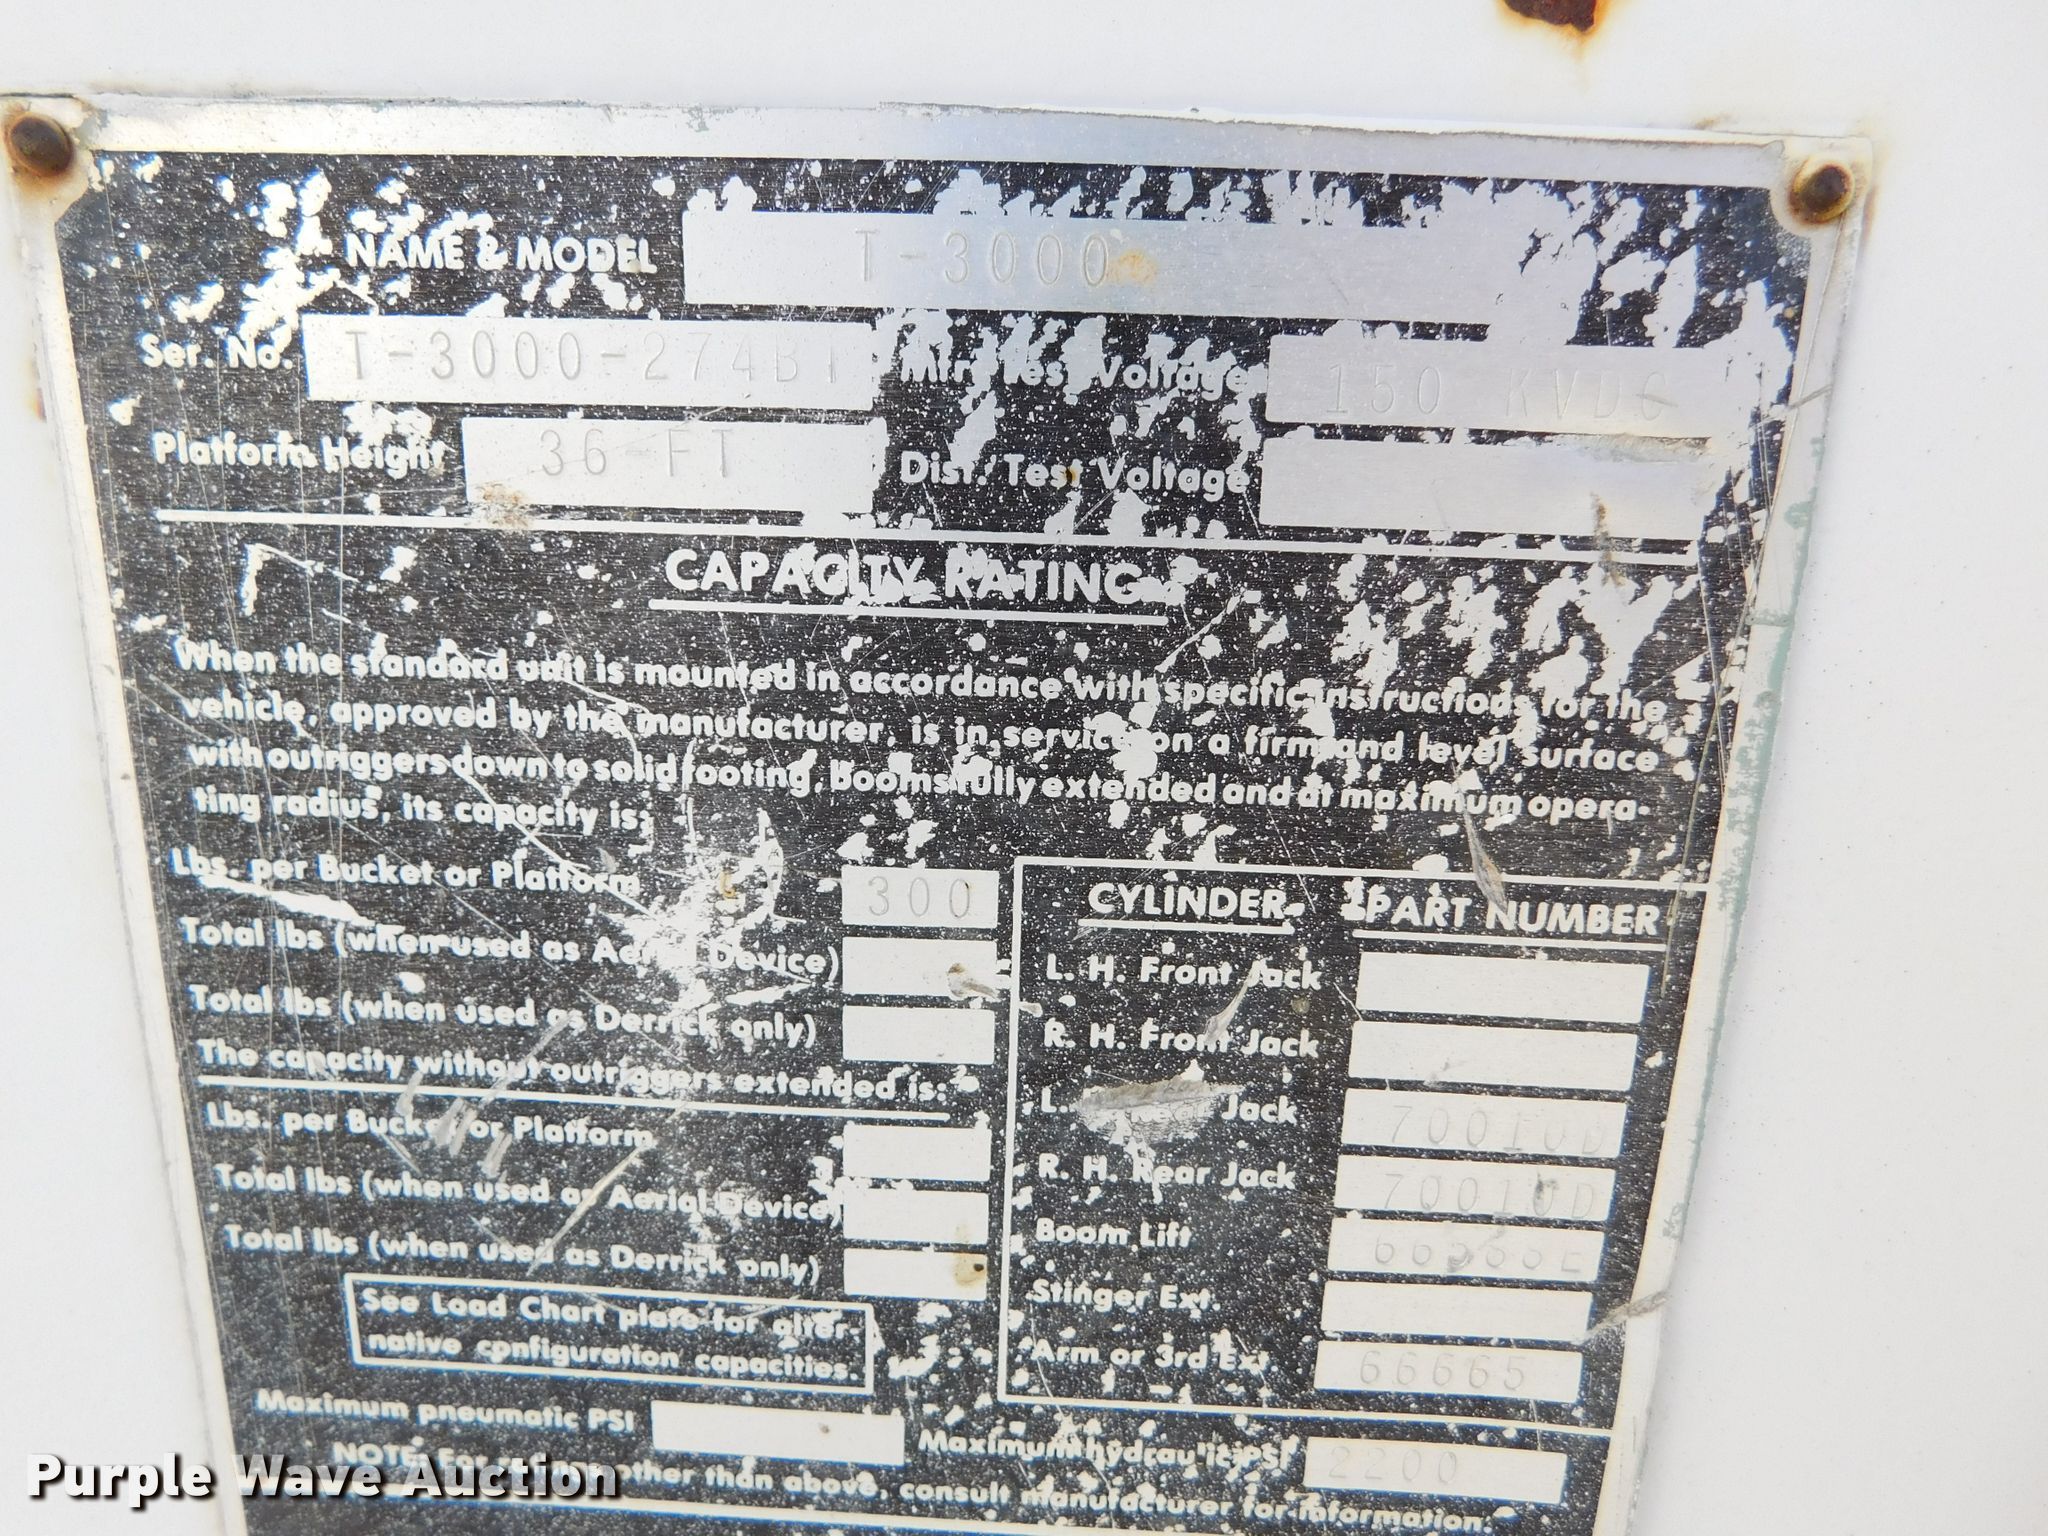 NAME & MODEL T-3000
Ser. No. T-3000-274BT Min. Test Voltage 150 KVDC
Platform Height 36-FT Dist. Test Voltage
CAPACITY RATING
When the standard unit is mounted in accordance with specific instructions for the
vehicle, approved by the manufacturer, is in service on a firm and level surface
with outriggers down to solid footing, booms fully extended and at maximum opera-
ting radius, its capacity is:
Lbs. per Bucket or Platform 300
Total lbs (when used as Aerial Device)
Total lbs (when used as Derrick only)
The capacity without outriggers extended is:
Lbs. per Bucket or Platform
Total lbs (when used as Aerial Device)
Total lbs (when used as Derrick only)
See Load Chart plate for alter-
native configuration capacities.
CYLINDER PART NUMBER
L. H. Front Jack
R. H. Front Jack
L. Rear Jack 70010D
R. H. Rear Jack 70010D
Boom Lift
Stinger Ext.
Arm or 3rd Ext. 66665
Maximum pneumatic PSI
Maximum hydraulic PSI 2200
NOTE: For other than above, consult manufacturer for information.
Purple Wave Auction